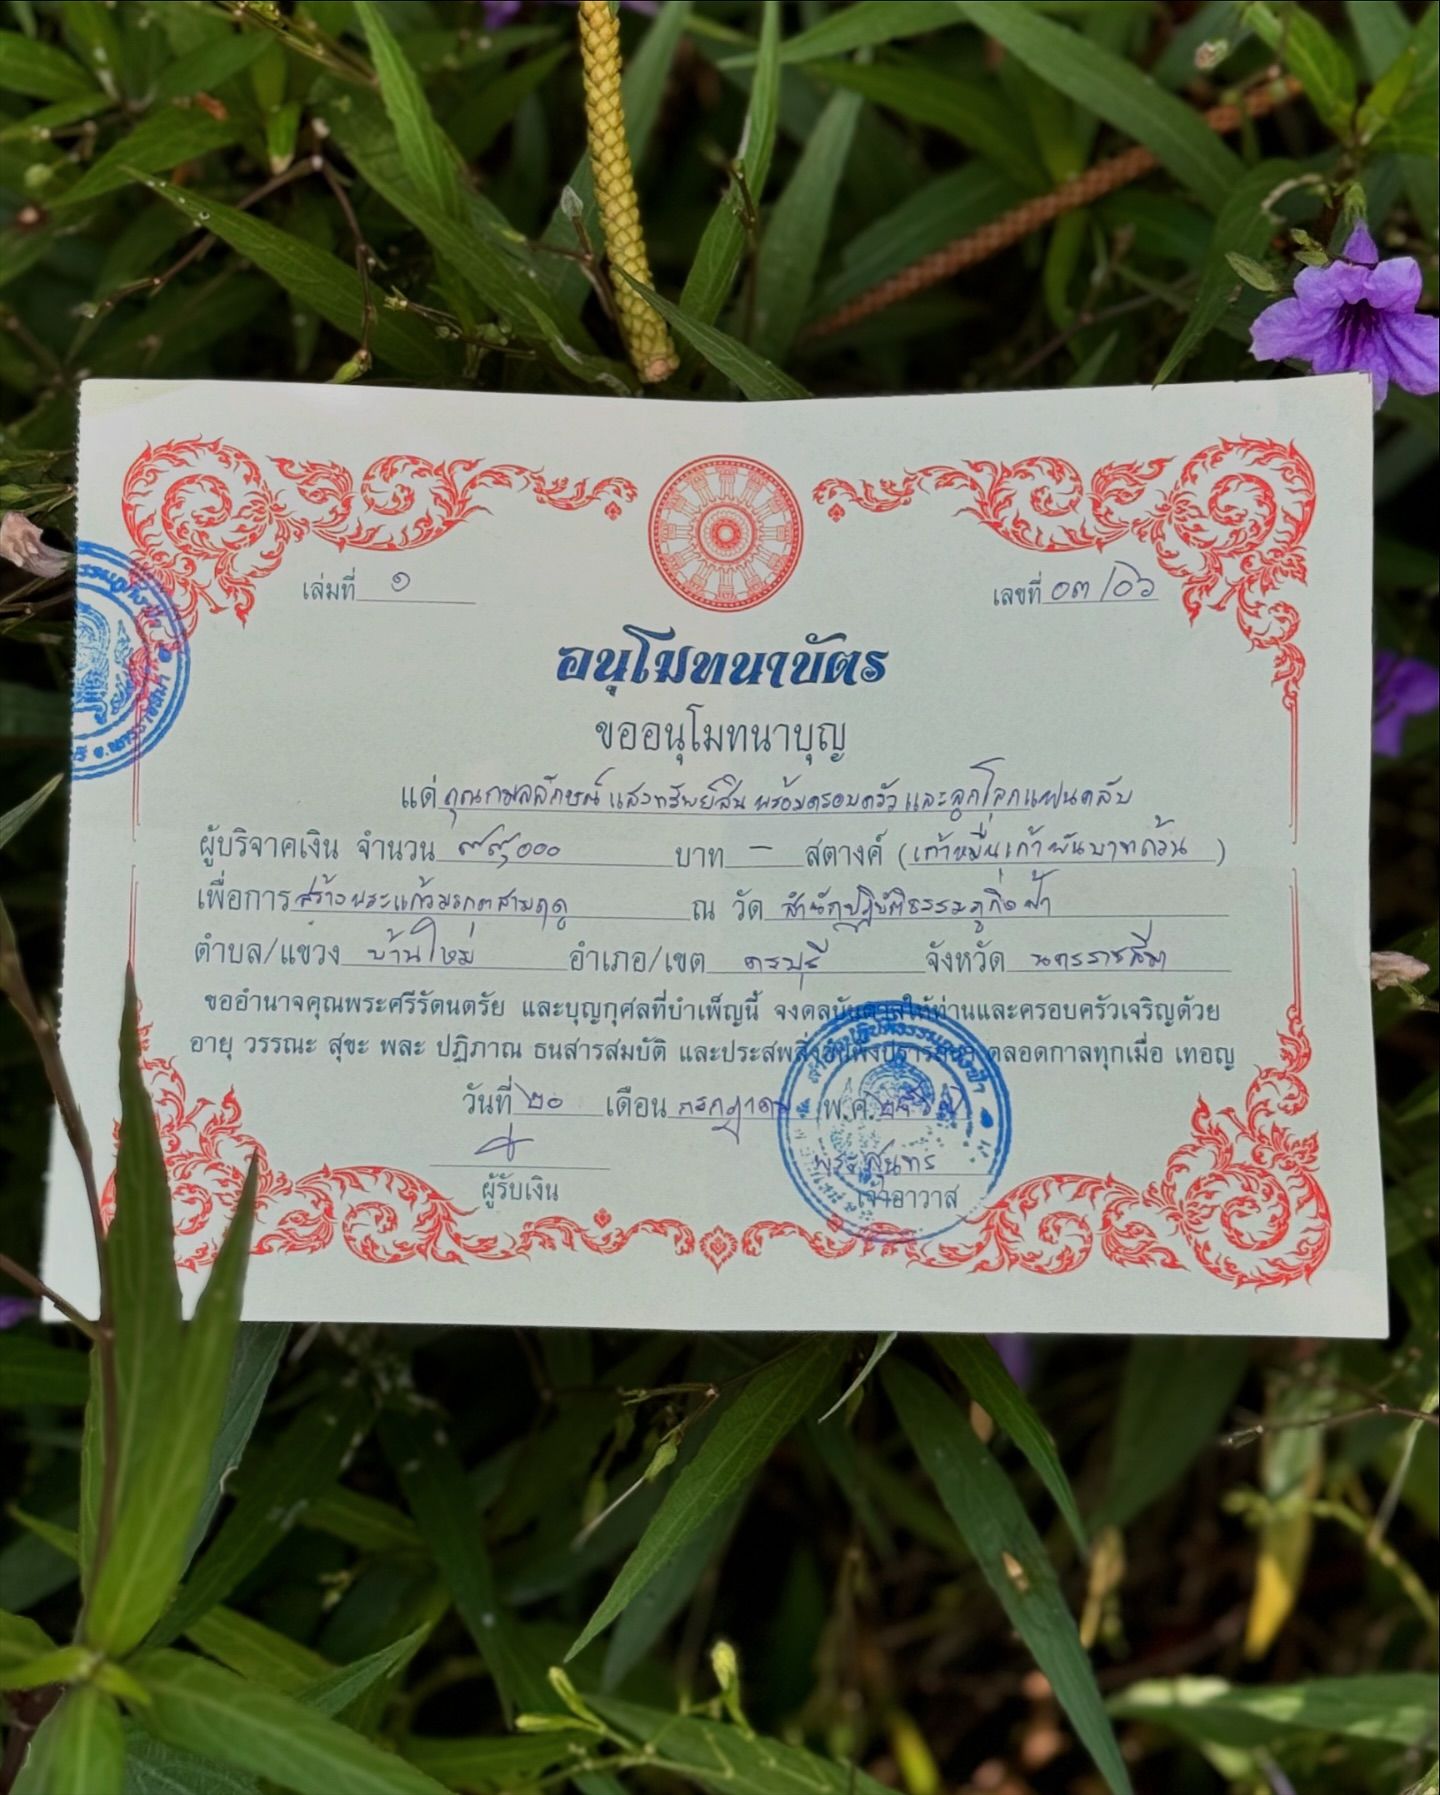 เล่มที่ ๑
เลขที่ ๐๓/๐๖
อนุโมทนาบัตร
ขออนุโมทนาบุญ
แด่ คุณกมลลักษณ์ แสงทรัพย์สิน พร้อมครอบครัว และลูกโลกแฟนคลับ
ผู้บริจาคเงิน จำนวน ๙๙,๐๐๐ บาท - สตางค์ (เก้าหมื่นเก้าพันบาทถ้วน)
เพื่อการ สร้างพระแก้วมรกตสามฤดู ณ วัด สำนักปฏิบัติธรรมภูกิ่งฟ้า
ตำบล/แขวง บ้านใหม่ อำเภอ/เขต ครบุรี จังหวัด นครราชสีมา
ขออำนาจคุณพระศรีรัตนตรัย และบุญกุศลที่บำเพ็ญนี้ จงดลบันดาลให้ท่านและครอบครัวเจริญด้วย
อายุ วรรณะ สุขะ พละ ปฏิภาณ ธนสารสมบัติ และประสพสิ่งอันพึงปรารถนา ตลอดกาลทุกเมื่อ เทอญ
วันที่ ๒๐ เดือน กรกฎาคม พ.ศ.
พระสุนทร
ผู้รับเงิน
เจ้าอาวาส